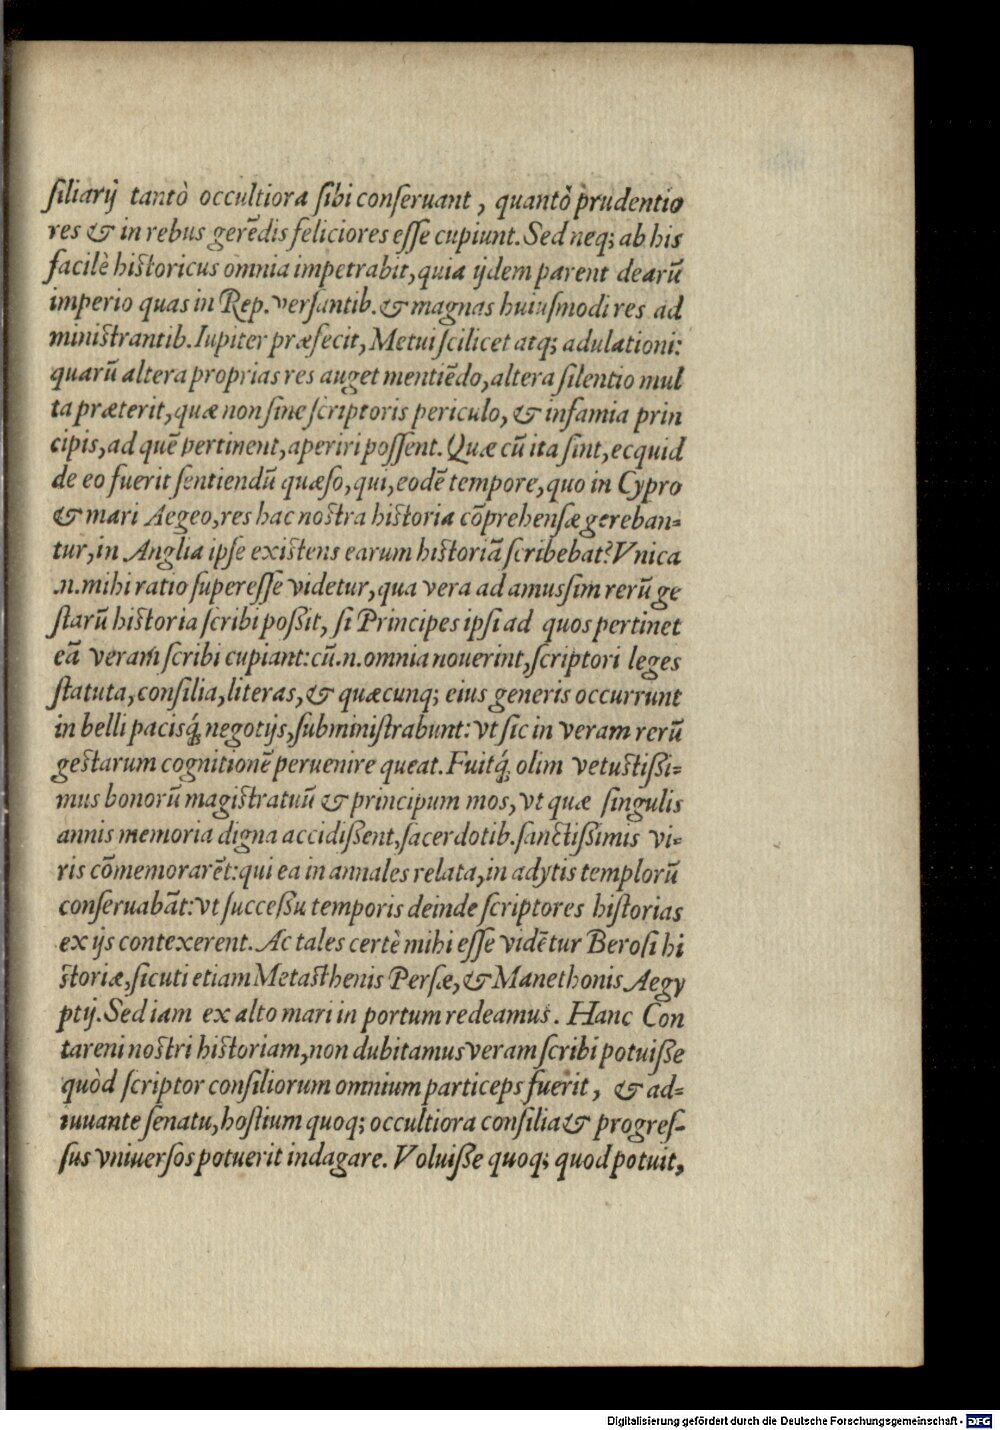 ſiliarij tantò occultiora ſibi conſeruant, quantò prudentio
res & in rebus gerēdis feliciores eſſe cupiunt. Sed neq; ab his
facilè hiſtoricus omnia impetrabit, quia ijdem parent dearū
imperio quas in Rep. verſantib. & magnas huiuſmodi res ad
miniſtrantib. Iupiter præfecit, Metui ſcilicet atq; adulationi:
quarū altera proprias res auget mentiēdo, altera ſilentio mul
ta præterit, quæ non ſine ſcriptoris periculo, & infamia prin
cipis, ad quē pertinent, aperiri poſſent. Quæ cū ita ſint, ecquid
de eo fuerit ſentiendū quæſo, qui, eodē tempore, quo in Cypro
& mari Aegeo, res hac noſtra hiſtoria cōprehenſæ gereban=
tur, in Anglia ipſe exiſtens earum hiſtoriā ſcribebat? Vnica
.n. mihi ratio ſupereſſe videtur, qua vera ad amusſim rerū ge
ſtarū hiſtoria ſcribi poßit, ſi Principes ipſi ad quos pertinet
eā veram ſcribi cupiant: cū .n. omnia nouerint, ſcriptori leges
ſtatuta, conſilia, literas, & quæcunq; eius generis occurrunt
in belli pacisq́; negotijs, ſubminiſtrabunt: vt ſic in veram rerū
geſtarum cognitionē peruenire queat. Fuitq́; olim vetuſtißi=
mus bonorū magiſtratuū & principum mos, vt quæ ſingulis
annis memoria digna accidißent, ſacerdotib. ſanctißimis vi=
ris cōmemorarēt: qui ea in annales relata, in adytis templorū
conſeruabāt: vt ſucceßu temporis deinde ſcriptores hiſtorias
ex ijs contexerent. Ac tales certè mihi eſſe vidētur Beroſi hi
ſtoriæ, ſicuti etiam Metaſthenis Perſæ, & Manethonis Aegy
ptij. Sed iam ex alto mari in portum redeamus. Hanc Con
tareni noſtri hiſtoriam, non dubitamus veram ſcribi potuiße
quòd ſcriptor conſiliorum omnium particeps fuerit, & ad=
iuuante ſenatu, hoſtium quoq; occultiora conſilia & progreſ-
ſus vniuerſos potuerit indagare. Voluiße quoq; quod potuit,
Digitalisierung gefördert durch die Deutsche Forschungsgemeinschaft - DFG